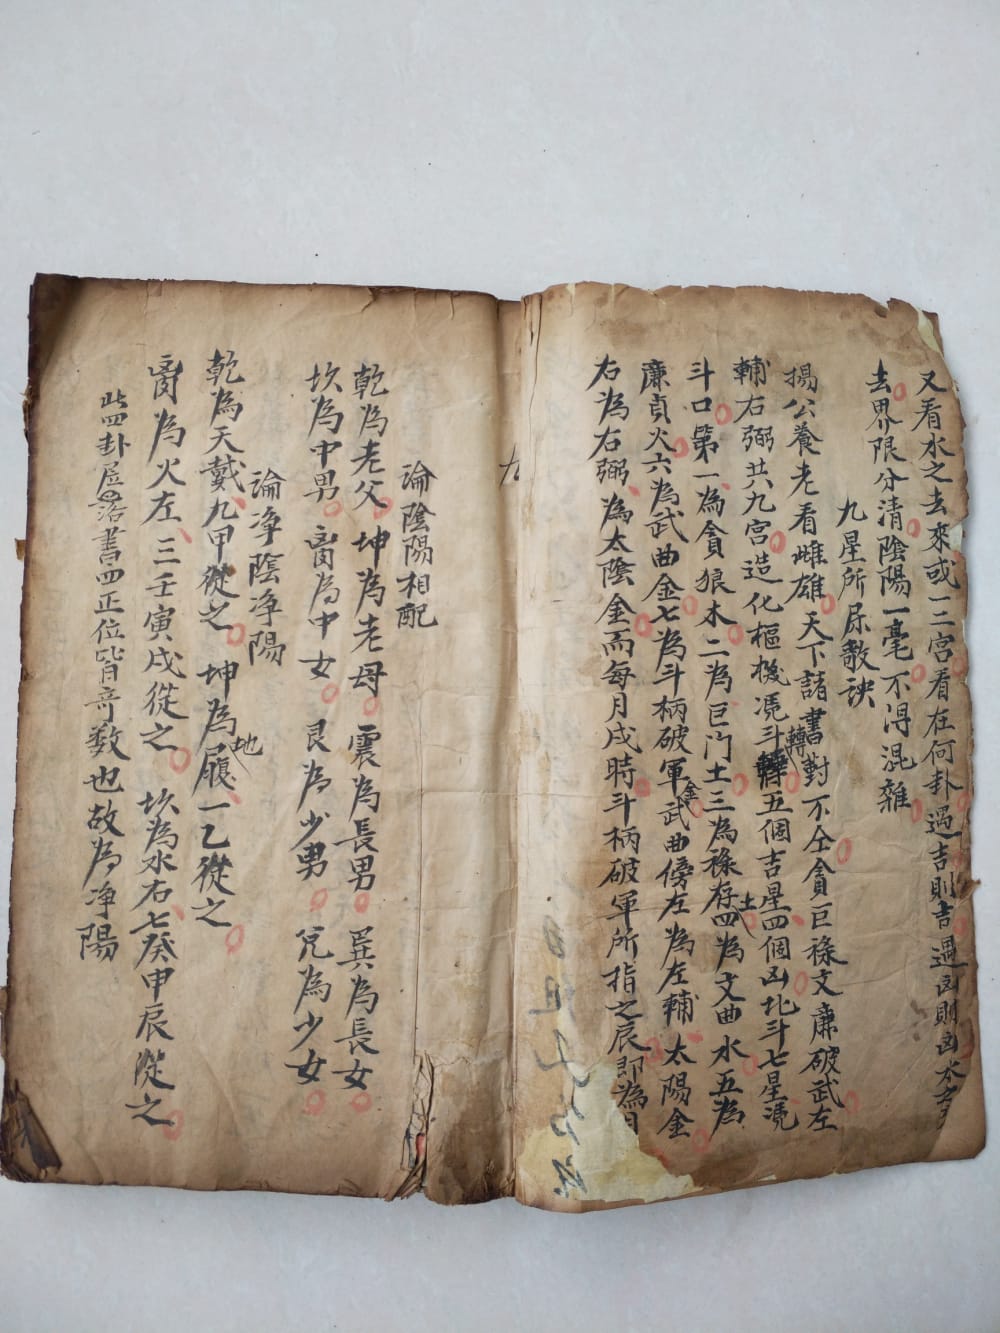 又看水之去來或一三宮看在何卦遇吉則吉遇凶則凶水
去界限分清陰陽一毫不得混雜
九星所屬歌訣
揚公養老看雌雄天下諸書對不仝貪巨祿文廉破武左
輔右弼共九宮造化樞機憑斗轉五個吉星四個凶北斗七星憑
斗口第一為貪狼木二為巨門土三為祿存土四為文曲水五為
廉貞火六為武曲金七為斗柄破軍金武曲傍左為左輔太陽金
右為右弼為太陰金而每月戌時斗柄破軍所指之辰即為月
論陰陽相配
乾為老父坤為老母震為長男巽為長女
坎為中男离為中女艮為少男兌為少女
論淨陰淨陽
乾為天戴九甲從之坤為地履一乙從之
离為火左三壬寅戌從之坎為水右七癸申辰從之
此四卦居洛書四正位皆奇数也故為淨陽